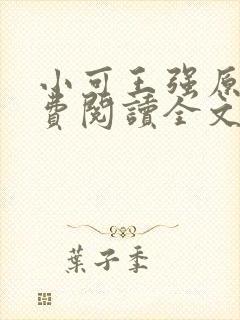 小可王强原
費閱讀全文
葉子季